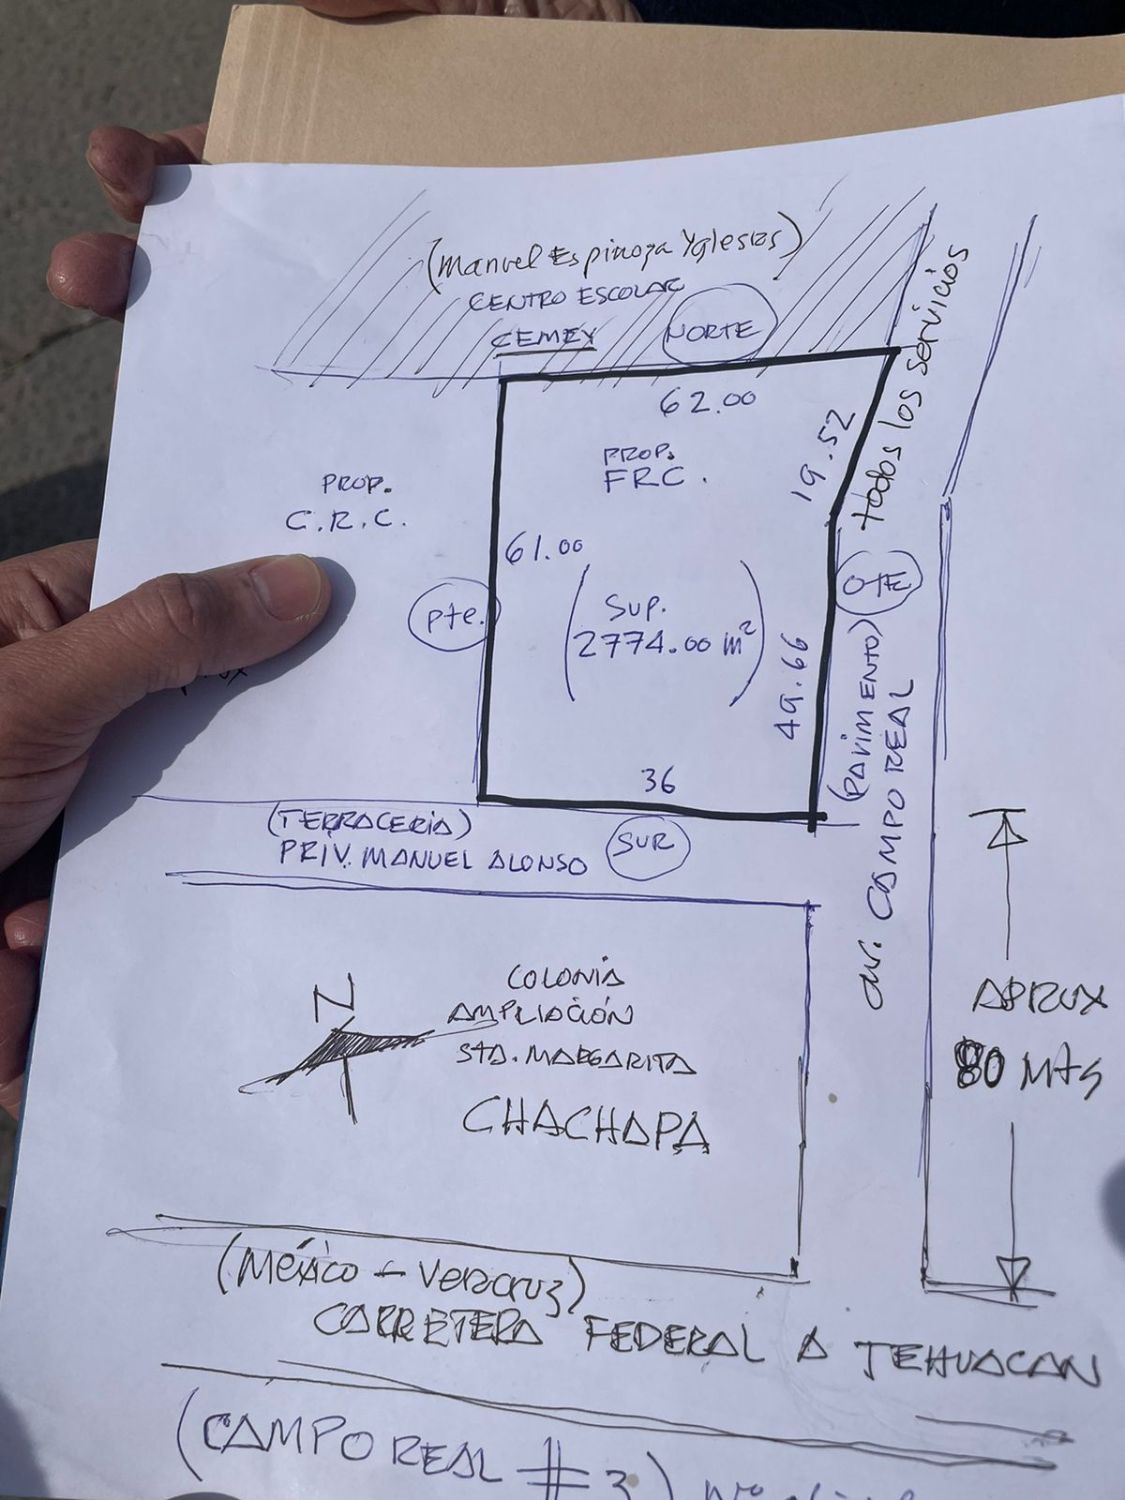 (Manuel Espinoza Yglesias)
CENTRO ESCOLAR
CEMEY
NORTE
62.00
19.52
todos los servicios
PROP.
FRC.
PROP.
C.R.C.
61.00
Pte.
Sup.
2774.00 m²
OTE
49.66
(PAVIMENTO)
av. CAMPO REAL
36
(TERRACERIA)
PRIV. MANUEL ALONSO
SUR
N
COLONIA
AMPLIACIÓN
STA. MARGARITA
CHACHAPA
APROX
80 Mts
(México - Veracruz)
CARRETERA FEDERAL A TEHUACAN
(CAMPO REAL # 3)